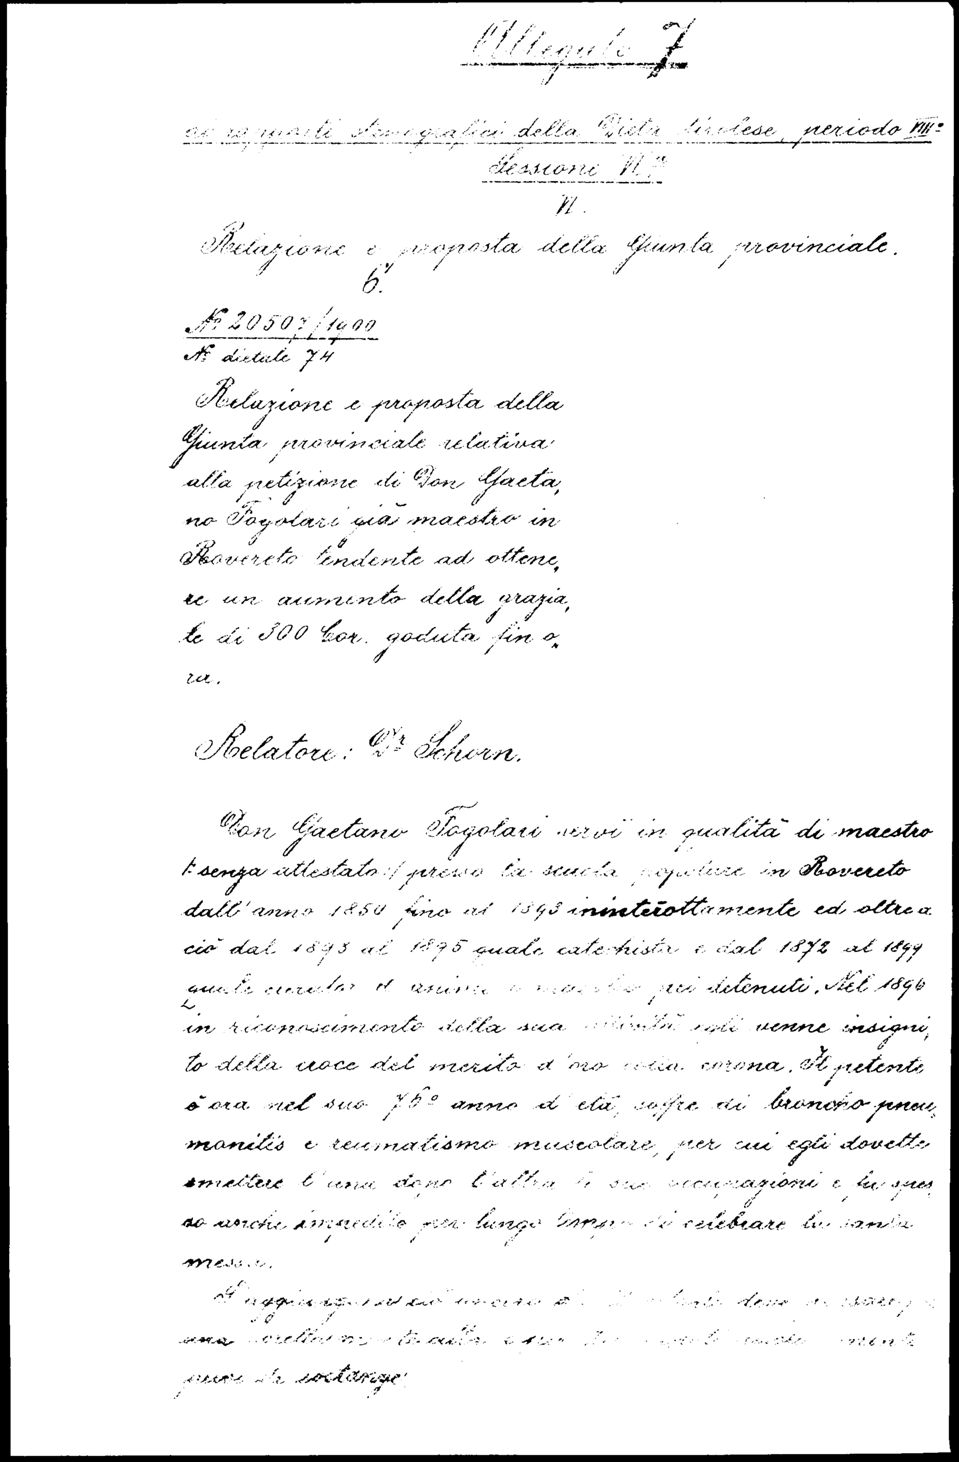 Allegato 7
ai rapporti stenografici della Dieta tirolese, periodo VIII º
Sessione VI.ª
VI.
Relazione e proposta della Giunta provinciale.
6.
Nº 20507/1900
Nº dietale 74
Relazione e proposta della
Giunta provinciale relativa
alla petizione di Don Gaeta„
no Fogolari già maestro in
Rovereto tendente ad ottene„
re un aumento della grazia„
le di 300 Cor. goduta fin o„
ra.
Relatore: Dr Schorn.
Don Gaetano Fogolari servì in qualità di maestro
/: senza attestato :/ presso la scuola popolare in Rovereto
dall'anno 1850 fino al 1893 ininterottamente ed oltre a
ciò dal 1893 al 1895 quale catechista e dal 1872 al 1899
quale curator d'anime e maestro pei detenuti. Nel 1896
in riconoscimento della sua attività egli venne insigni„
to della croce del merito d'oro colla corona. Il petente
è ora nel suo 75º anno d'età, soffre di broncho pneu„
monitis e reumatismo muscolare, per cui egli dovette
smettere l'una dopo l'altra le sue occupazioni e fu spes„
so anche impedito per lungo tempo di celebrare la santa
messa.
S'aggiunge a ciò ancora deve
una sorella
prive di sostanze.